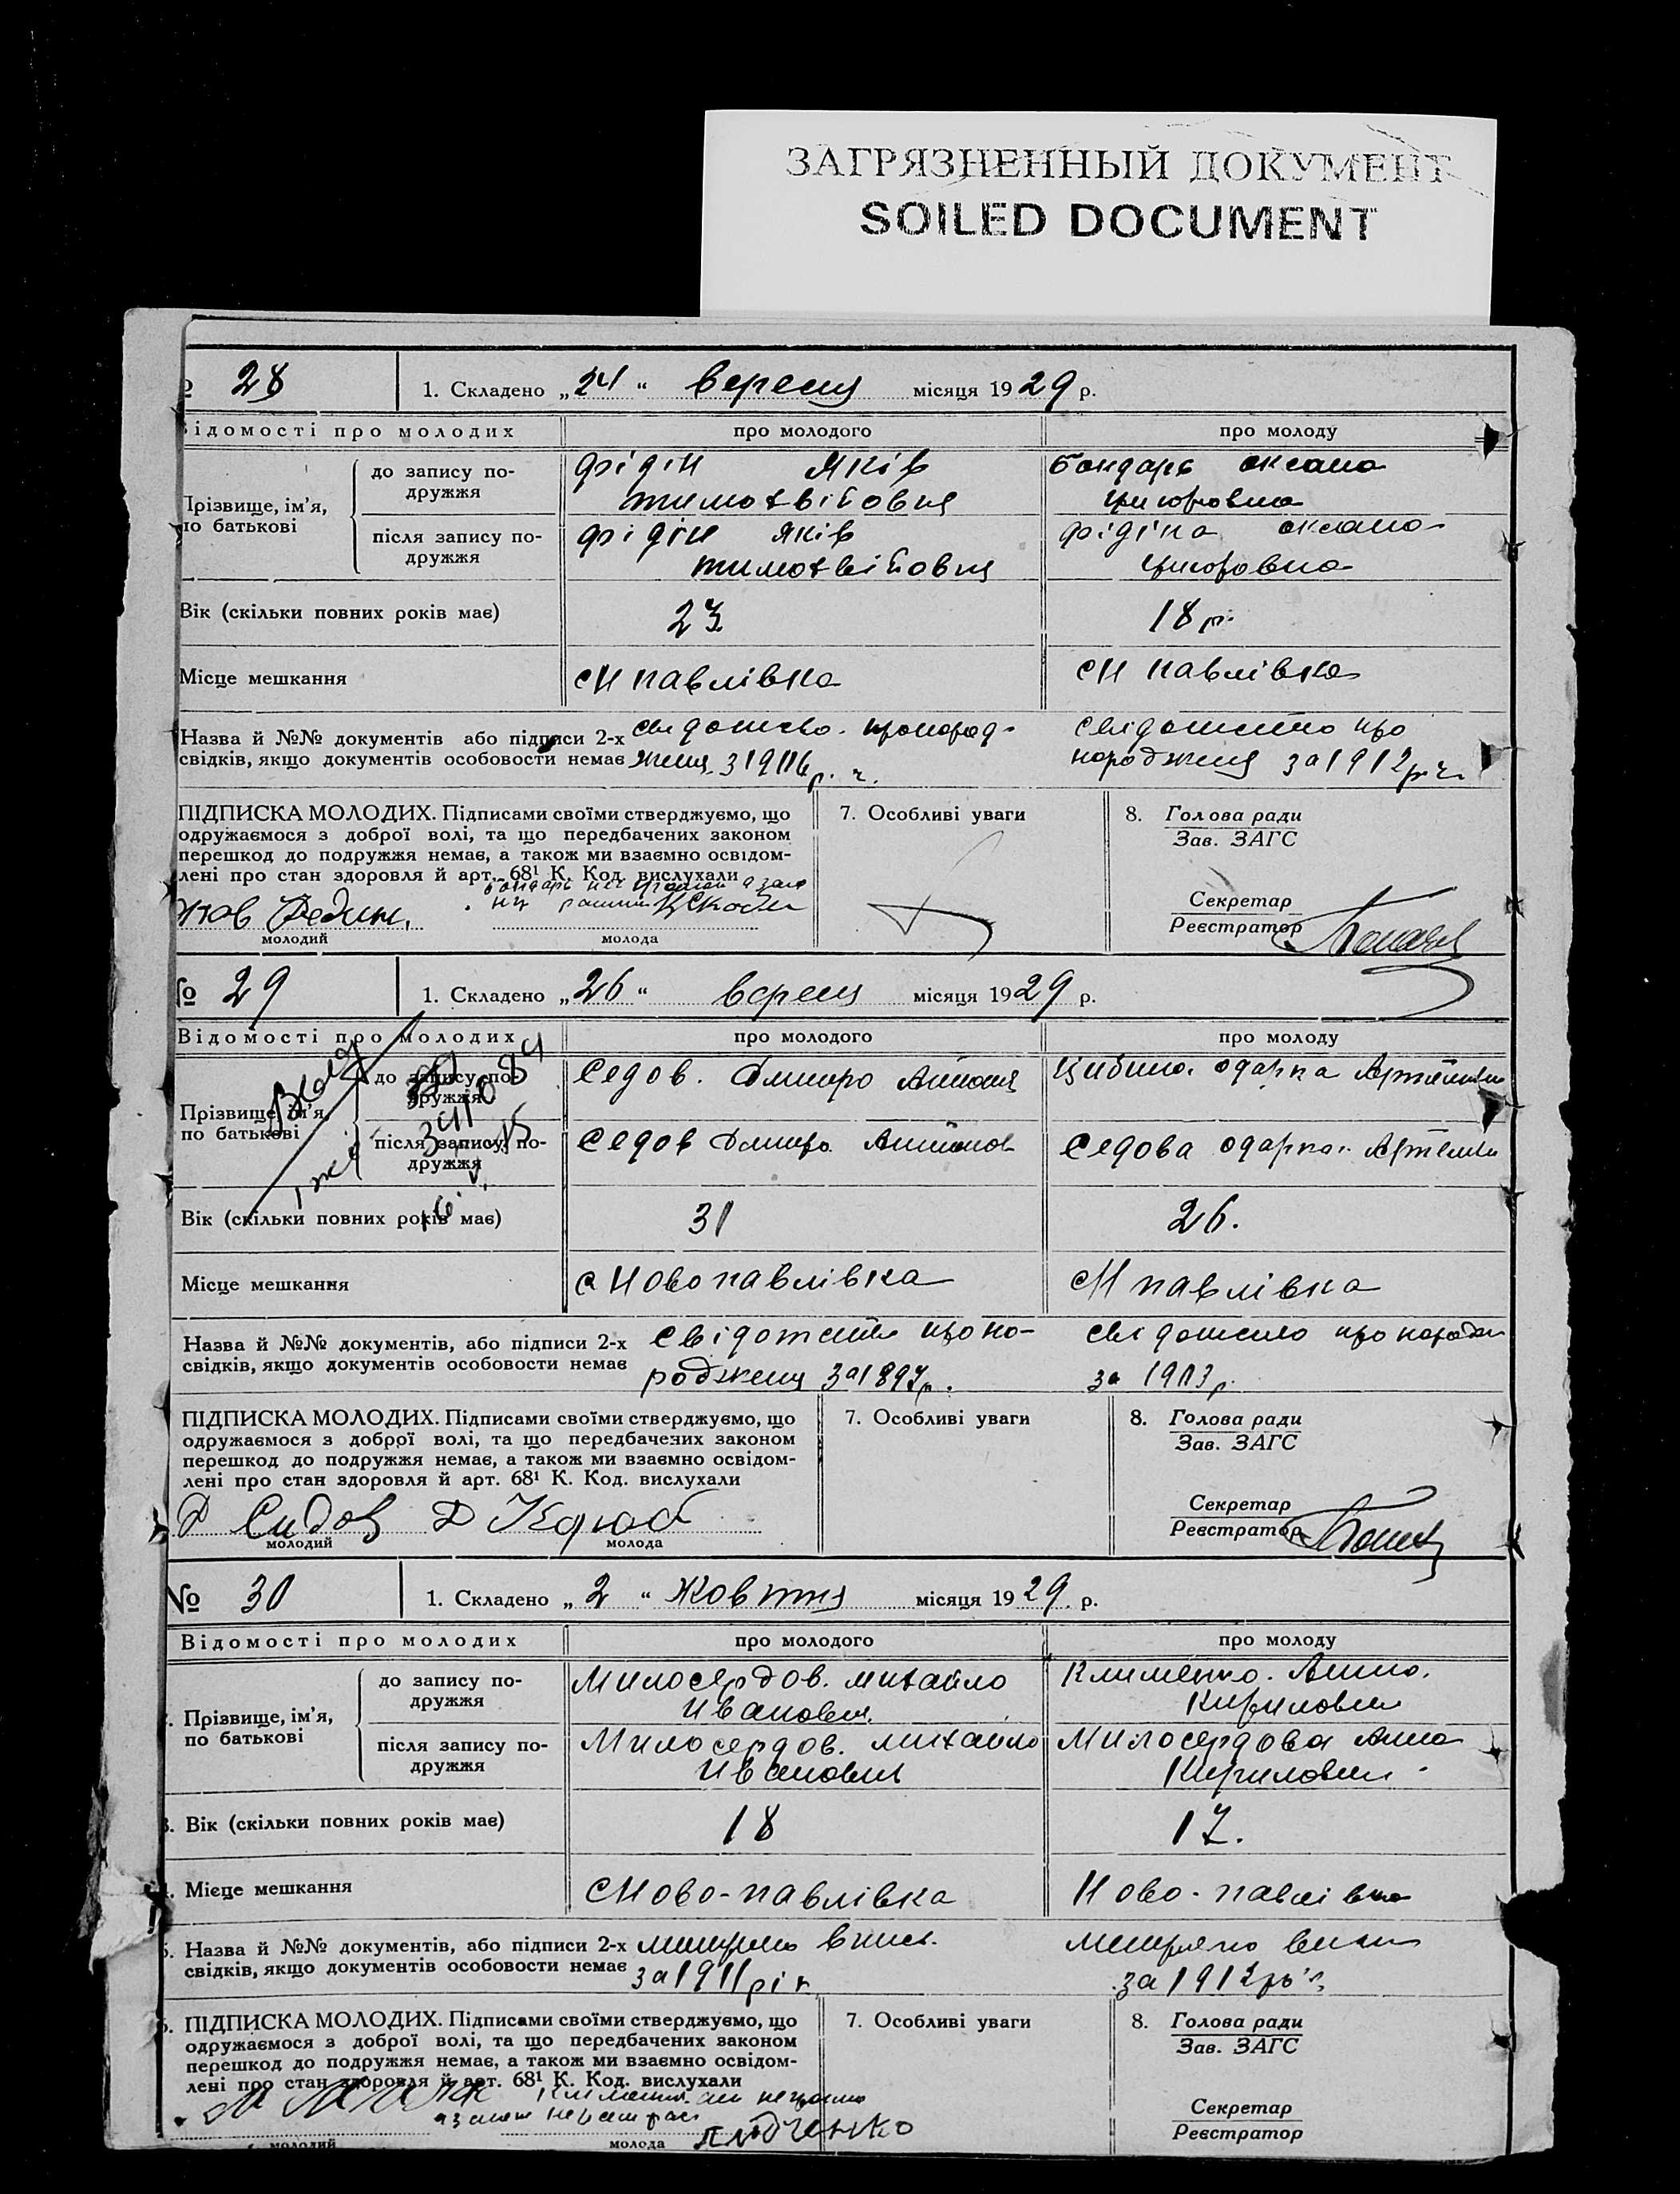 ЗАГРЯЗНЕННЫЙ ДОКУМЕНТ
SOILED DOCUMENT
28
1. Складено „24“ вересня місяця 1929 р.
Відомості про молодих
про молодого
про молоду
Прізвище, ім’я, по батькові
до запису по-
дружжя
Фідін Яків
Бондарь Оксана
після запису по-
дружжя
Фідін Яків
Фідіна Оксана
Вік (скільки повних років має)
23
18 р.
Місце мешкання
с Н павлівка
с Н павлівка
Назва й №№ документів або підписи 2-х
свідків, якщо документів особовости немає
свідоцтво про народ-
ження
р.
свідоцтво про
народження за 1912 р.
ПІДПИСКА МОЛОДИХ. Підписами своїми стверджуємо, що
одружаємося з доброї волі, та що передбачених законом
перешкод до подружжя немає, а також ми взаємно освідом-
лені про стан здоровля й арт. 68¹ К. Код. вислухали
молодий
молода
7. Особливі уваги
8. Голова ради
Зав. ЗАГС
Секретар
Реєстратор
№ 29
1. Складено „26“ вересня місяця 1929 р.
Відомості про молодих
про молодого
про молоду
Прізвище, ім’я,
по батькові
до запису по-
дружжя
Седов Дмитро
Одарка
після запису по-
дружжя
Седов Дмитро
Седова Одарка
Вік (скільки повних років має)
31
26.
Місце мешкання
с Новопавлівка
с Н павлівка
Назва й №№ документів, або підписи 2-х
свідків, якщо документів особовости немає
про на-
родження за 1897 р.
про народж
за 1903 р.
ПІДПИСКА МОЛОДИХ. Підписами своїми стверджуємо, що
одружаємося з доброї волі, та що передбачених законом
перешкод до подружжя немає, а також ми взаємно освідом-
лені про стан здоровля й арт. 68¹ К. Код. вислухали
Д Сидов
молодий
молода
7. Особливі уваги
8. Голова ради
Зав. ЗАГС
Секретар
Реєстратор
№ 30
1. Складено „2“ Жовтня місяця 1929 р.
Відомості про молодих
про молодого
про молоду
Прізвище, ім’я,
по батькові
до запису по-
дружжя
Милосердов. михайло
Иванович
Клименко. Анна.
Кириловна
після запису по-
дружжя
Милосердов. михайло
Иванович
Милосердова Анна
Кириловна
3. Вік (скільки повних років має)
18
17.
4. Місце мешкання
с Ново-павлівка
Ново-павлівка
5. Назва й №№ документів, або підписи 2-х
свідків, якщо документів особовости немає
за 1911 рік
за 1912 р
ПІДПИСКА МОЛОДИХ. Підписами своїми стверджуємо, що
одружаємося з доброї волі, та що передбачених законом
перешкод до подружжя немає, а також ми взаємно освідом-
лені про стан здоровля й арт. 68¹ К. Код. вислухали
молодий
молода
7. Особливі уваги
8. Голова ради
Зав. ЗАГС
Секретар
Реєстратор